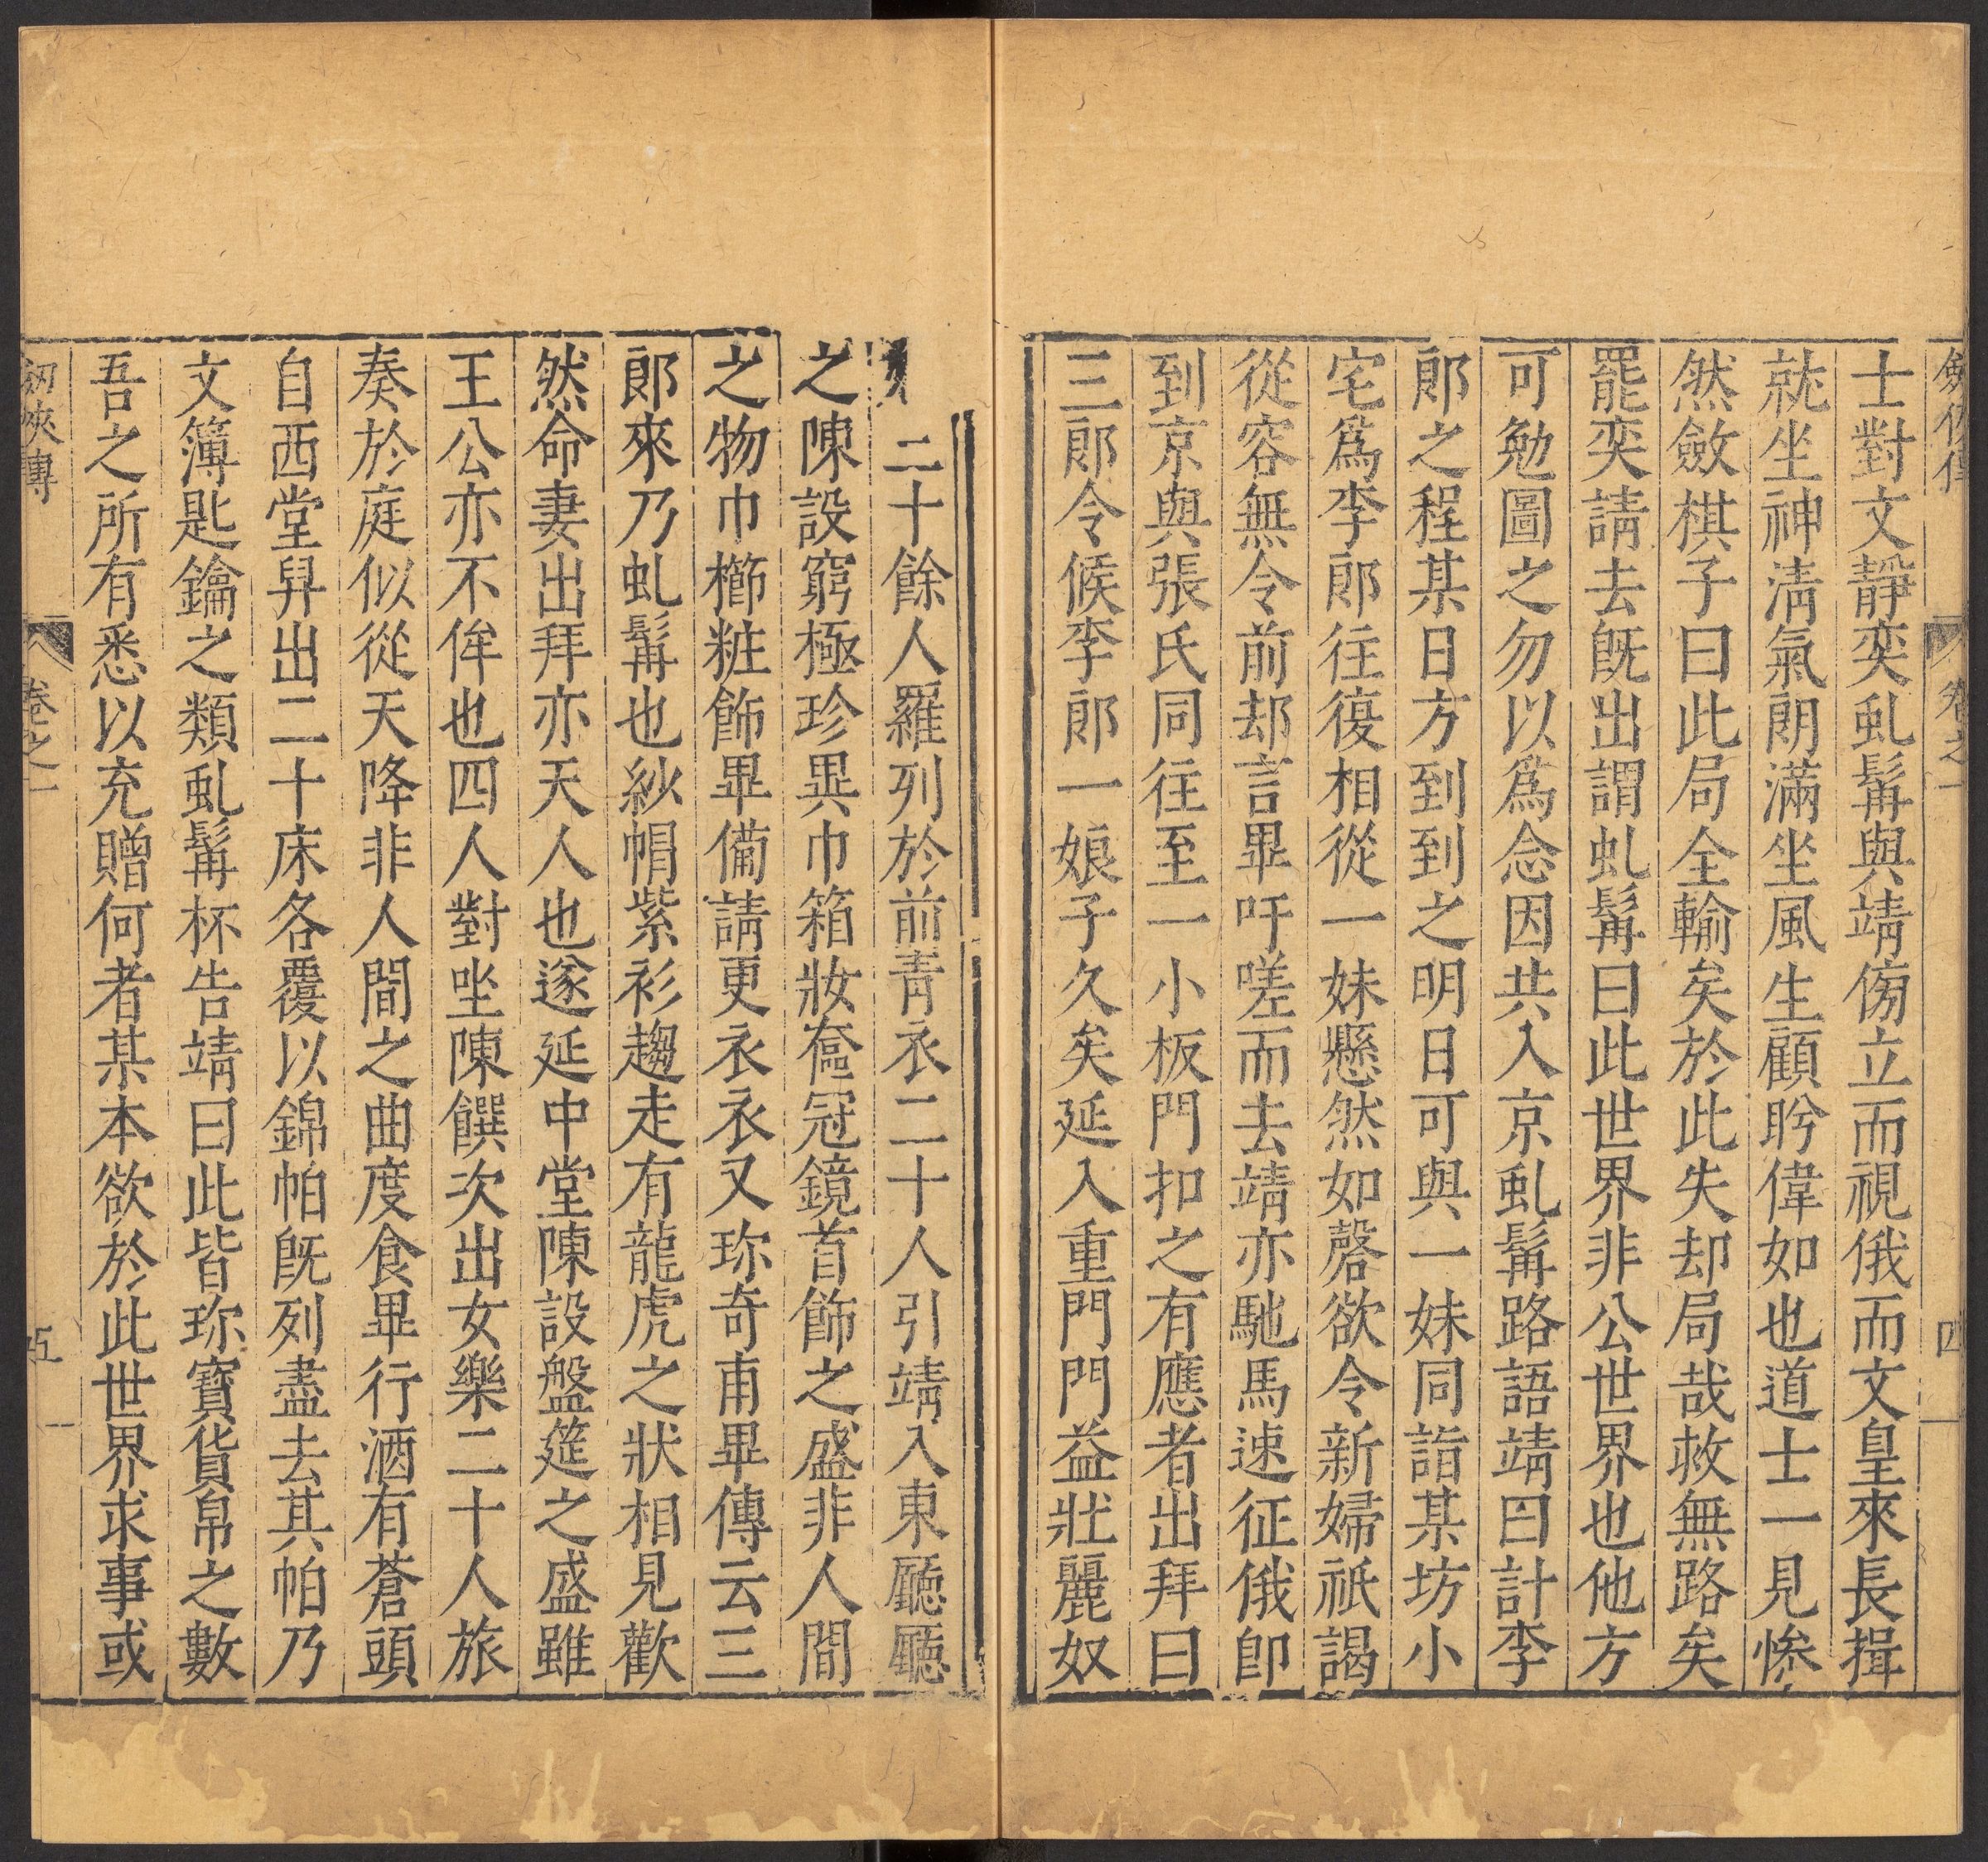 劍俠傳 卷之一 四
士對文靜奕虬髯與靖傍立而視俄而文皇來長揖
就坐神淸氣朗滿坐風生顧盻偉如也道士一見慘
然斂棋子曰此局全輸矣於此失却局哉救無路矣
罷奕請去旣出謂虬髯曰此世界非公世界也他方
可勉圖之勿以爲念因共入京虬髯路語靖曰計李
郎之程某日方到到之明日可與一妹同詣某坊小
宅爲李郎往復相從一妹懸然如磬欲令新婦祇謁
從容無令前却言畢吁嗟而去靖亦馳馬速征俄卽
到京與張氏同往至一小板門扣之有應者出拜曰
三郎令候李郎一娘子久矣延入重門門益壯麗奴
二十餘人羅列於前靑衣二十人引靖入東廳廳
之陳設窮極珍異巾箱妝奩冠鏡首飾之盛非人間
之物巾櫛粧飾畢備請更衣衣又珎奇甫畢傳云三
郎來乃虬髯也紗帽紫衫趨走有龍虎之狀相見歡
然命妻出拜亦天人也遂延中堂陳設盤筵之盛雖
王公亦不侔也四人對坐陳饌次出女樂二十人旅
奏於庭似從天降非人間之曲度食畢行酒有蒼頭
自西堂舁出二十床各覆以錦帕旣列盡去其帕乃
文簿匙鑰之類虬髯杯告靖曰此皆珎寶貨帛之數
吾之所有悉以充贈何者某本欲於此世界求事或
劒俠傳 卷之一 五